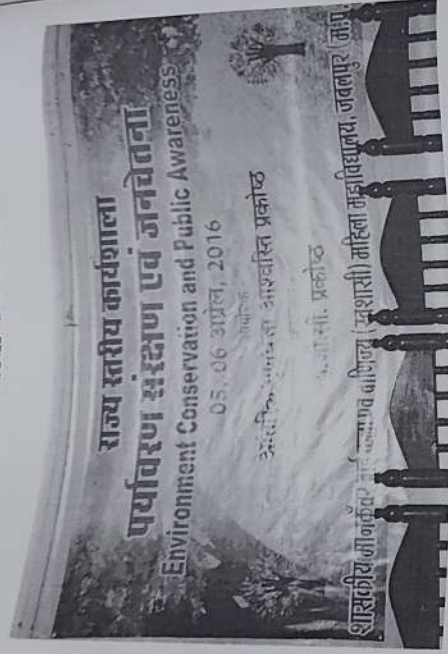 राज्य स्तरीय कार्यशाला
पर्यावरण संरक्षण एवं जनचेतना
Environment Conservation and Public Awareness
05, 06 अप्रेल, 2016
आश्वस्ति प्रकोष्ठ
प्रकोष्ठ
शासकीय कला एवं वाणिज्य (स्वशासी) महिला महाविद्यालय, जबलपुर (म.प्र.